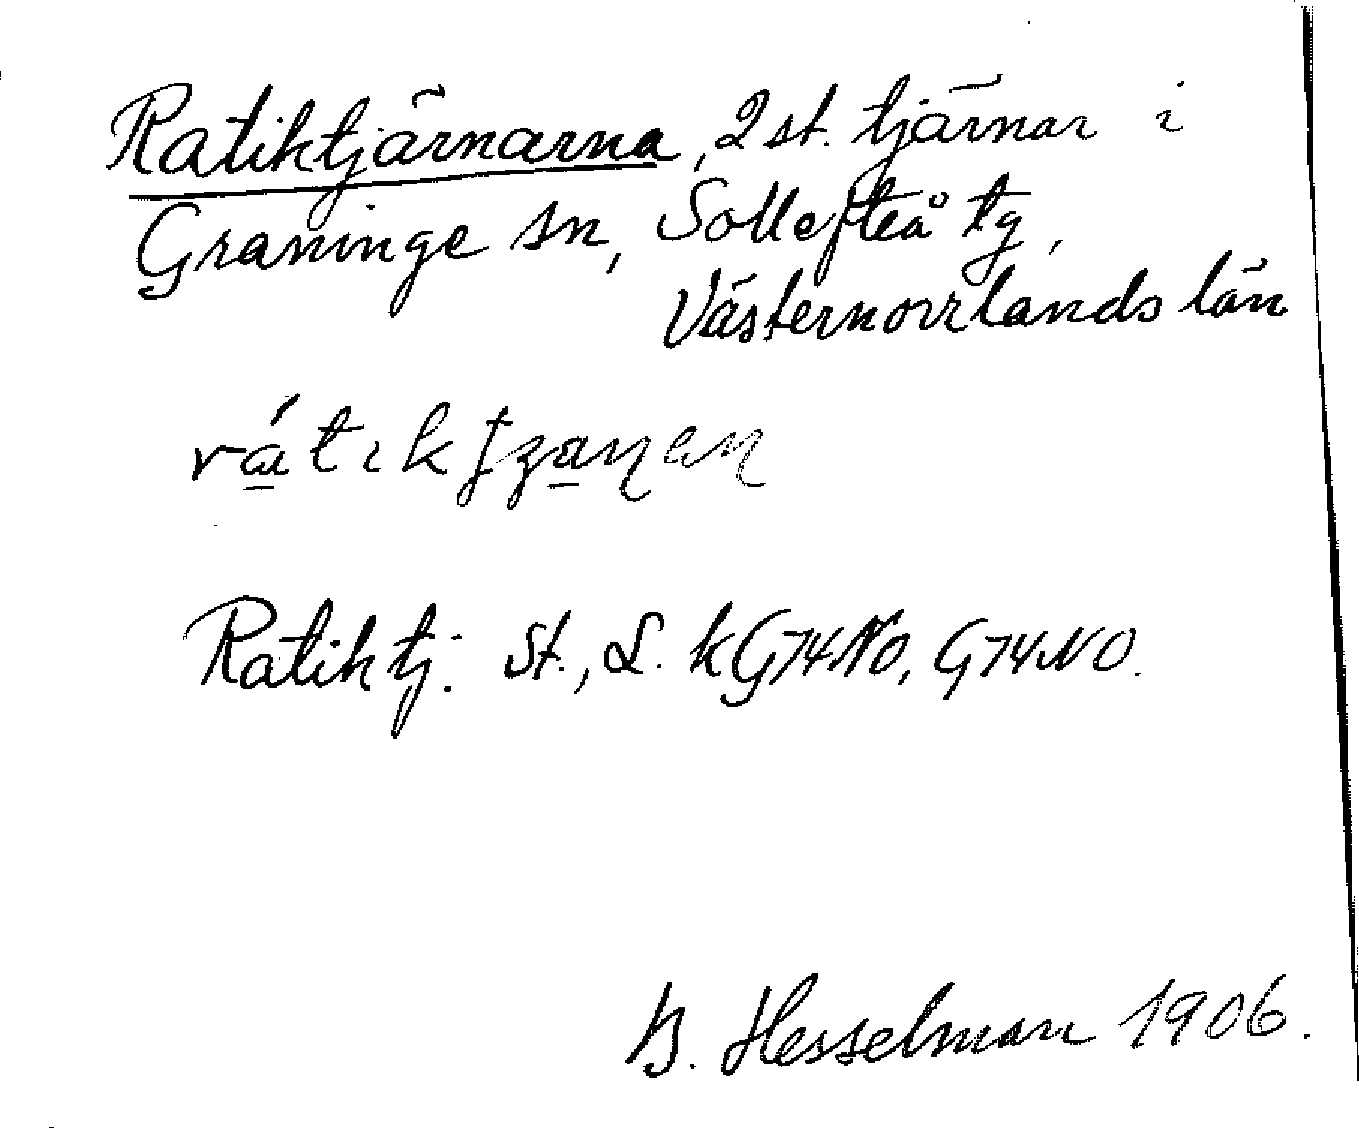 Ratiktjärnarna, 2 st. tjärnar i
Graninge sn, Sollefteå tg,
Västernorrlands län
Ratiktj. St., L. kG74NO, G74NO.
B. Hesselman 1906.